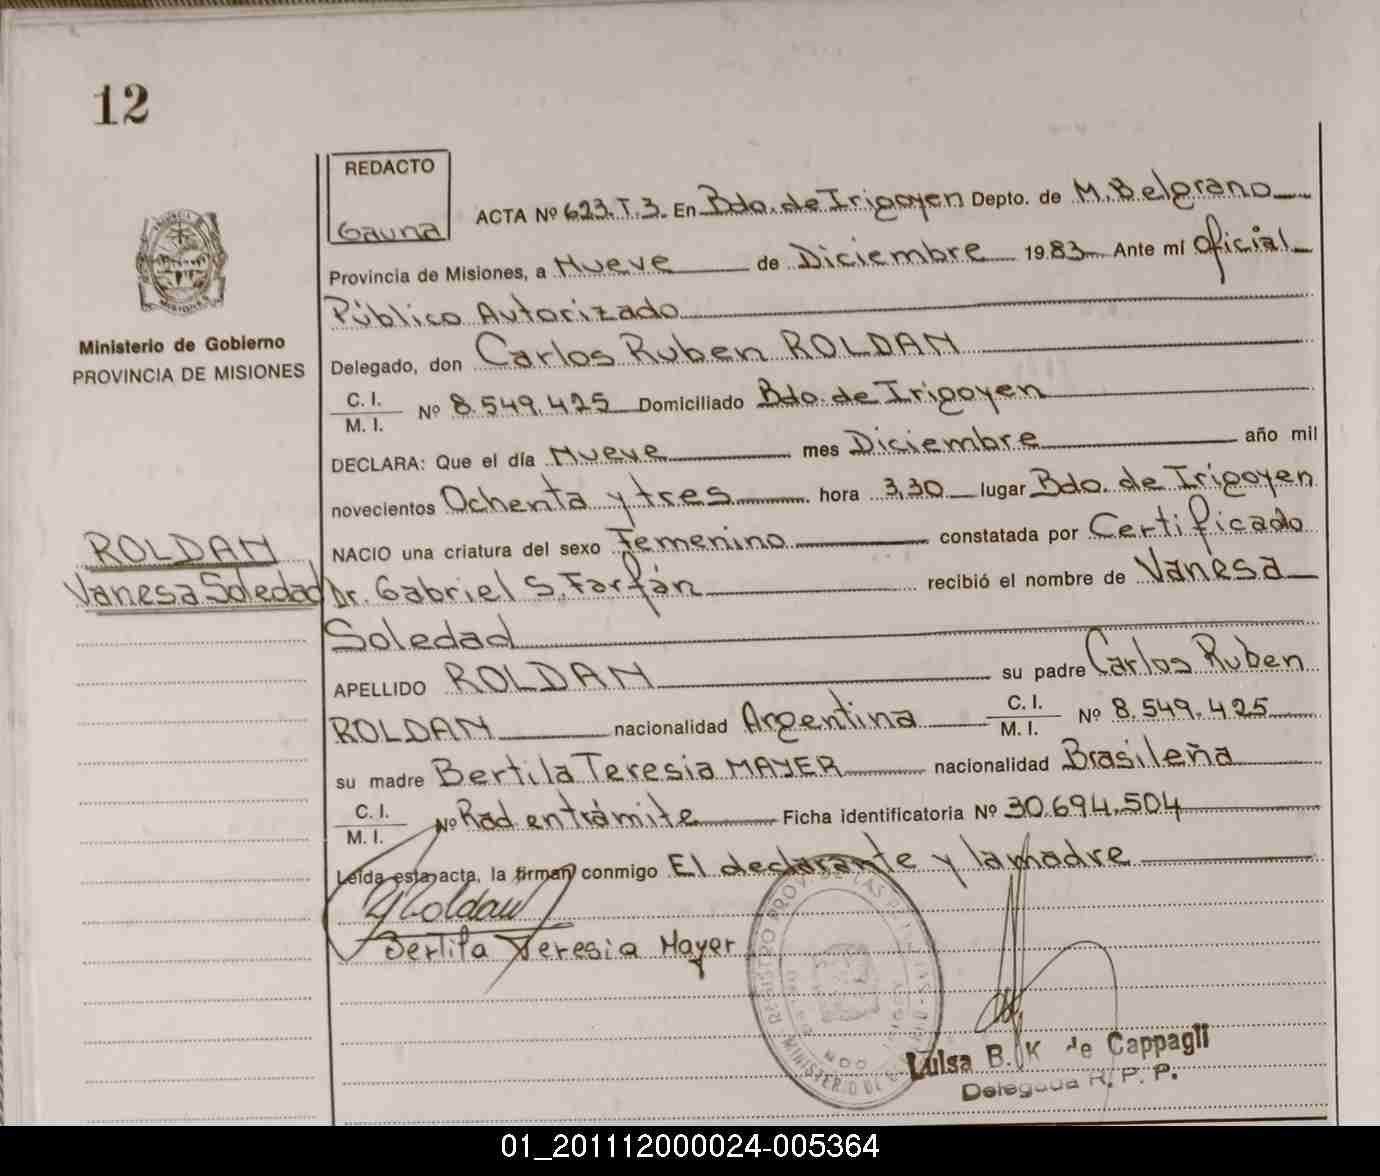 12
REDACTO
Gauna
ACTA Nº 623.T.3. En Bdo. de Irigoyen Depto. de M. Belgrano
Provincia de Misiones, a Nueve de Diciembre 1983 Ante mí Oficial
Público Autorizado
Ministerio de Gobierno
PROVINCIA DE MISIONES
Delegado, don Carlos Ruben ROLDAN
C. I.
M. I.
Nº 8.549.425 Domiciliado Bdo. de Irigoyen
DECLARA: Que el día Nueve mes Diciembre año mil
novecientos Ochenta y tres hora 3,30 lugar Bdo. de Irigoyen
ROLDAN
Vanesa Soledad
NACIO una criatura del sexo Femenino constatada por Certificado
Dr. Gabriel S. Farfán recibió el nombre de Vanesa
Soledad
APELLIDO ROLDAN su padre Carlos Ruben
ROLDAN nacionalidad Argentina C. I. M. I. Nº 8.549.425
su madre Bertila Teresia MAYER nacionalidad Brasileña
C. I.
M. I.
Nº Rad. en trámite Ficha identificatoria Nº 30.694.504
Leída esta acta, la firman conmigo El declarante y la madre
Roldan
Bertila Teresia Mayer
REGISTRO PROV. DE LAS PERSONAS
MINISTERIO DE
Luisa B. K de Cappagli
Delegada R. P. P.
01_201112000024-005364